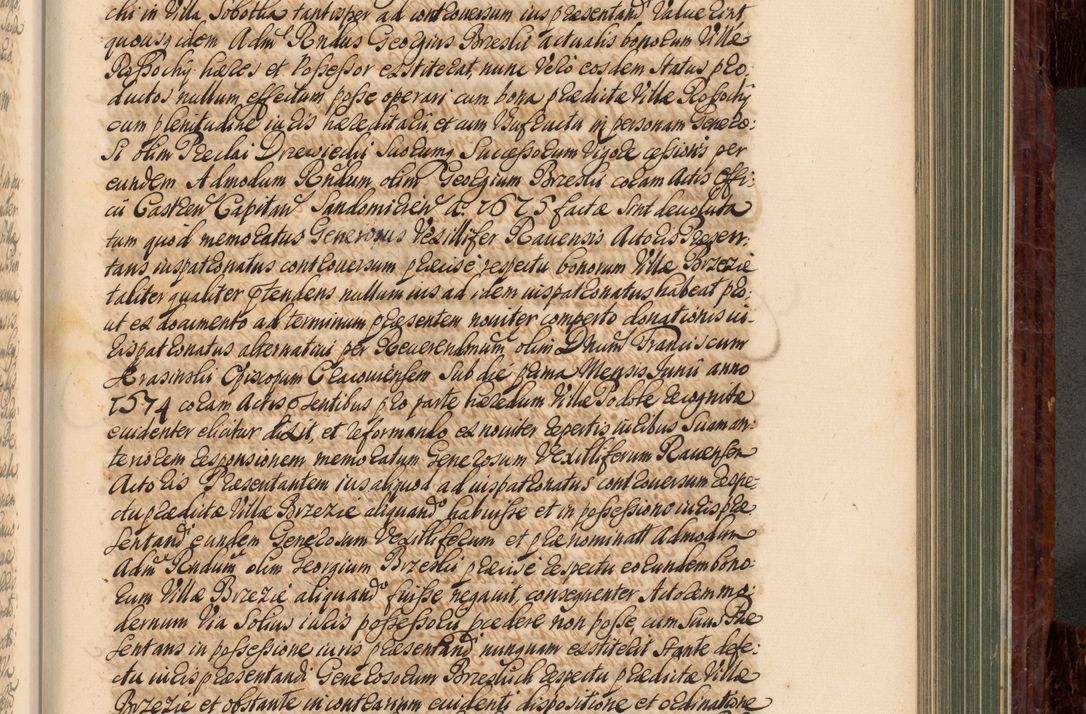 chi in Villa Sobotka tantisper ad controversum ius præsentandi Value rint
quousq; idem Adm. Rndus Georgius Brzeski actualis bonorum Villæ
Rossochy hæres et Possessor extiterat, nunc Vero eosdem Status pro:
ductos nullum effectum posse operari cum bona prædictæ Villæ Rossochy
cum plenitudine iuris hæreditarii, et cum Usufructu in personam Genero:
si olim Preclai Drzewiecki Suorumq Successorum Vigore cessionis per
eundem Admodum Rndum olim Georgium Brzeski coram Actis Offi:
cii Castren Capitan Sandomirien A. 1675 factæ sint devoluta
tum quod memoratus Generosus Vexillifer Ravensis Actor is Præsen:
tans iuspatronatus controversum præcise respectu bonorum Villæ Brzezie
taliter qualiter prtendens nullum ius ad idem iuspatronatus habeat pro:
ut ex documento ad terminum præsentem noviter comperto donationis iu:
rispatronatus alternativi per Reverendmum olim Dnum Franciscum
Krasinski Episcopum Cracoviensem Sub die prima Mensis Junii anno
1574 coram Actis psentibus pro parte hæredum Villæ Podole recognitæ
evidenter elicitur dixit, et reformando ex noviter repertis iuribus Suam an:
teriorem responsionem memoratum Generosum Vexilliferum Ravensem
Actorem Præsentantem ius aliquod ad iuspatronatus controversum respe:
ctu prædictæ Villæ Brzezie aliquando habuisse et in possessione iuris præ
sentandi eundem Generosum Vexilliferum et prænominatt Admodum
Adm Rndum olim Georgium Brzeski præcise respectu eorundem bono:
rum Villæ Brzezie aliquando fuisse negavit, consequenter Actorem mo:
dernum Via Solius iuris possessorii procedere non posse, cum Suus Præ
sentans in possessione iuris præsentandi nunquam extiterit Stante defe:
ctu iuris præsentandi Generosorum Brzeskich respectu prædictæ Villæ
Brzezie et obstante in contrarium evidenti dispositione et ordinatione